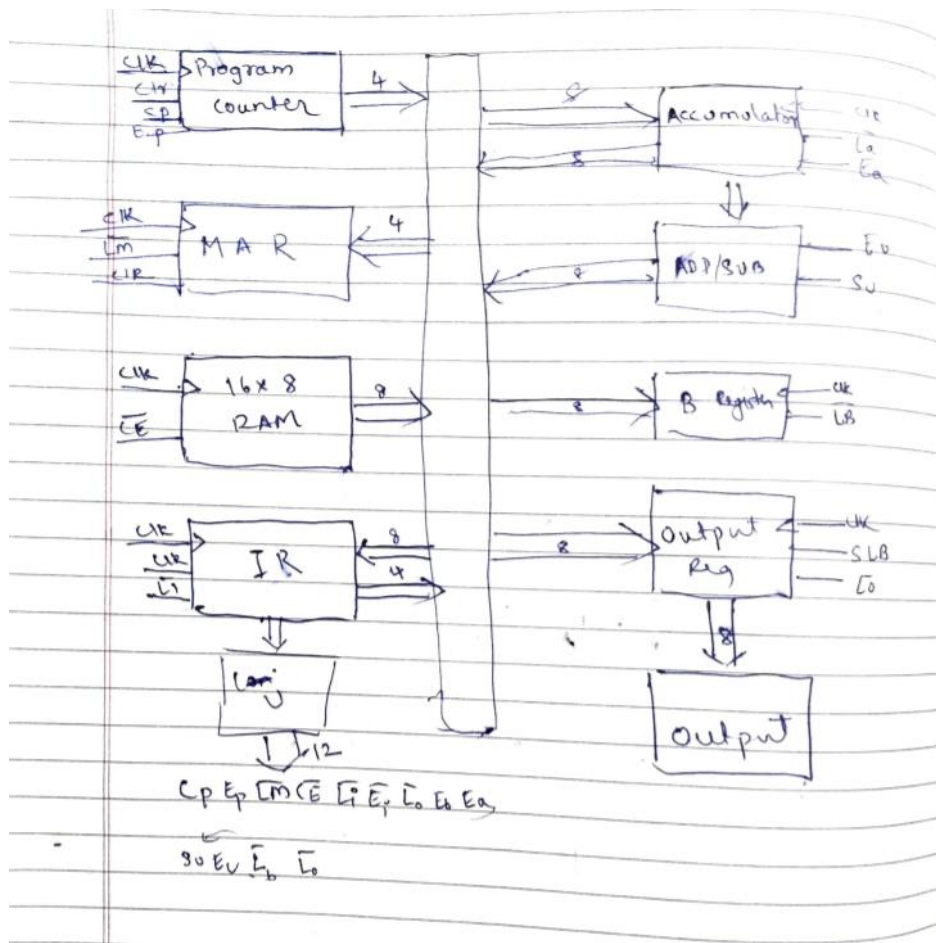 Clk
Clr
Sp
Ep
Program
counter
4
8
Accumulator
Clk
L̅a
Ea
8
Clk
L̅m
CLR
MAR
4
ADD/SUB
Eu
Su
8
Clk
C̅E̅
16 x 8
RAM
8
8
B Register
Clk
L̅B̅
Clk
Clk
L̅i
IR
8
4
8
Output
Reg
Clk
SLB
L̅o
8
12
Output
Cp Ep L̅m C̅E̅ L̅i E̅i L̅o Eo Ea
Su Eu L̅b L̅o